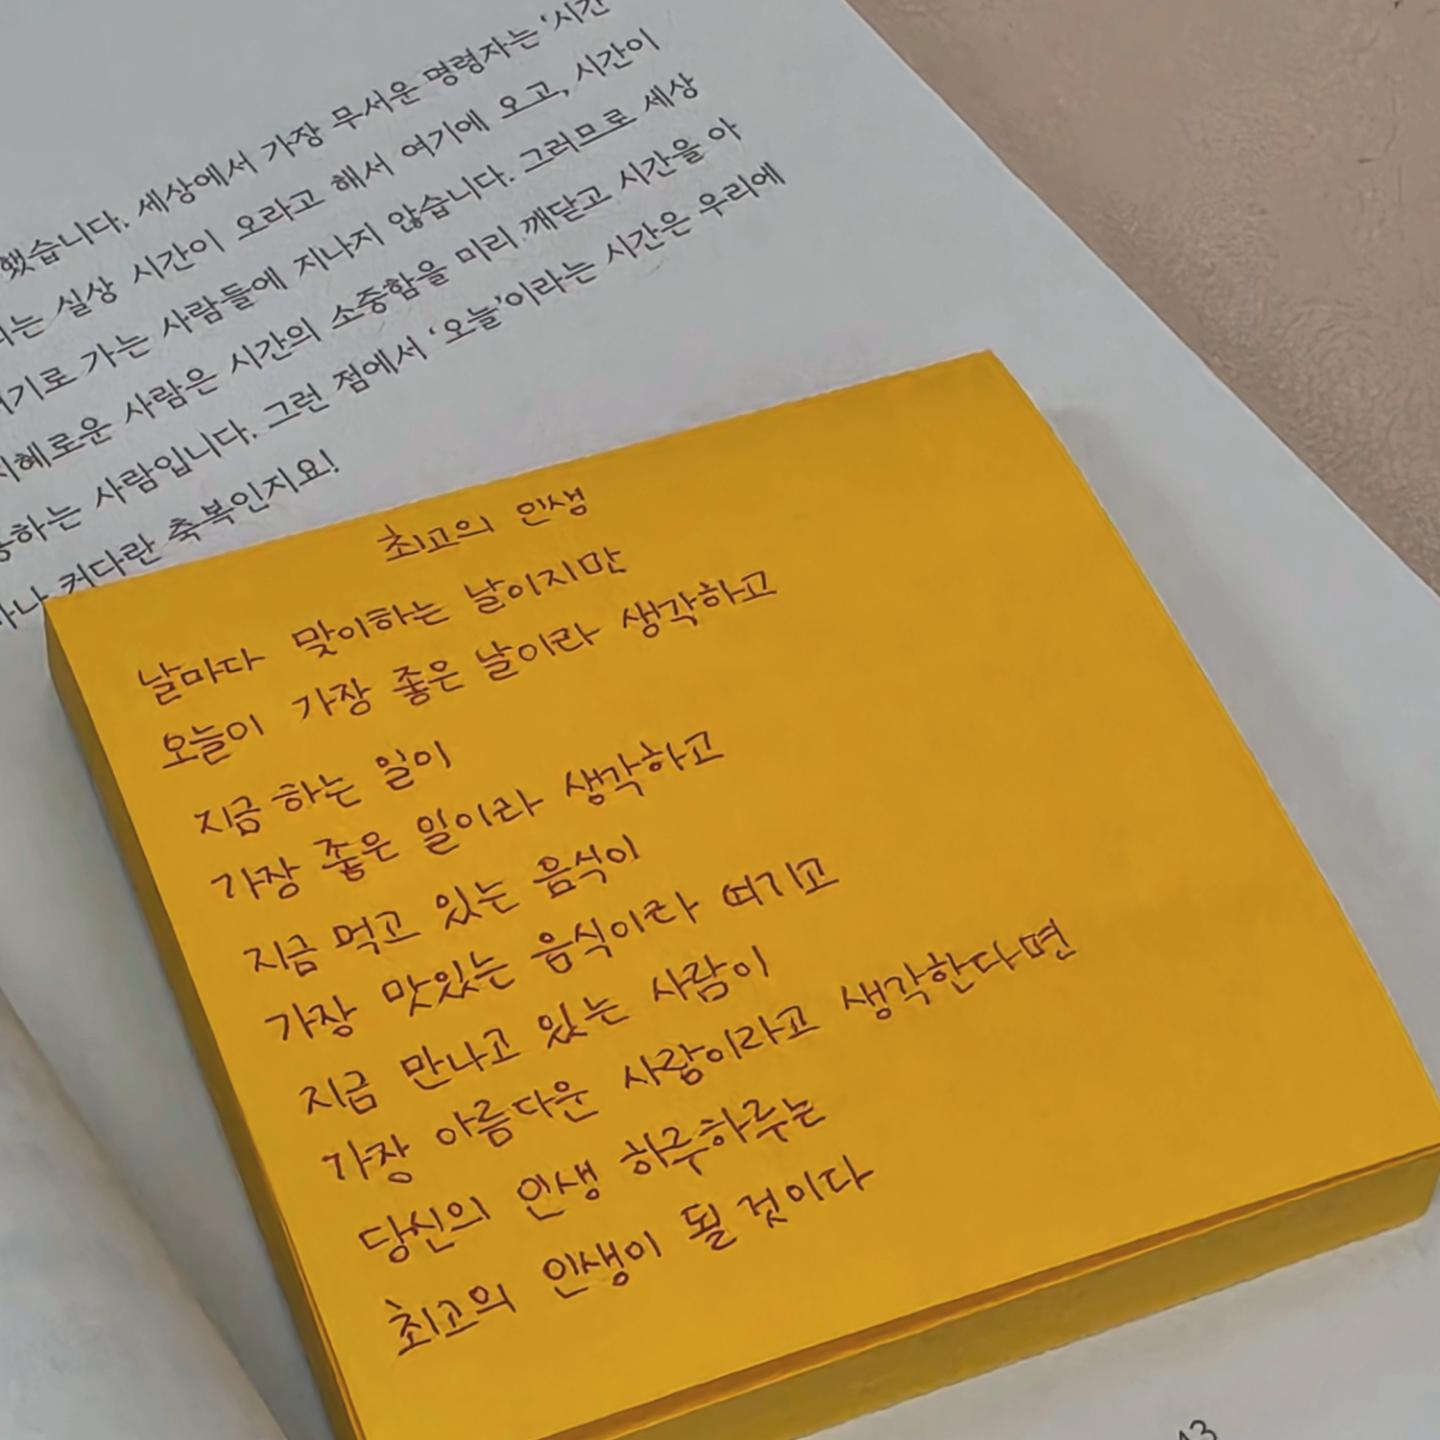 했습니다. 세상에서 가장 무서운 명령자는 ‘시간
는 실상 시간이 오라고 해서 여기에 오고, 시간이
기로 가는 사람들에 지나지 않습니다. 그러므로 세상
지혜로운 사람은 시간의 소중함을 미리 깨닫고 시간을 아
하는 사람입니다. 그런 점에서 ‘오늘’이라는 시간은 우리에
커다란 축복인지요!
최고의 인생
날마다 맞이하는 날이지만
오늘이 가장 좋은 날이라 생각하고
지금 하는 일이
가장 좋은 일이라 생각하고
지금 먹고 있는 음식이
가장 맛있는 음식이라 여기고
지금 만나고 있는 사람이
가장 아름다운 사랑이라고 생각한다면
당신의 인생 하루하루는
최고의 인생이 될 것이다